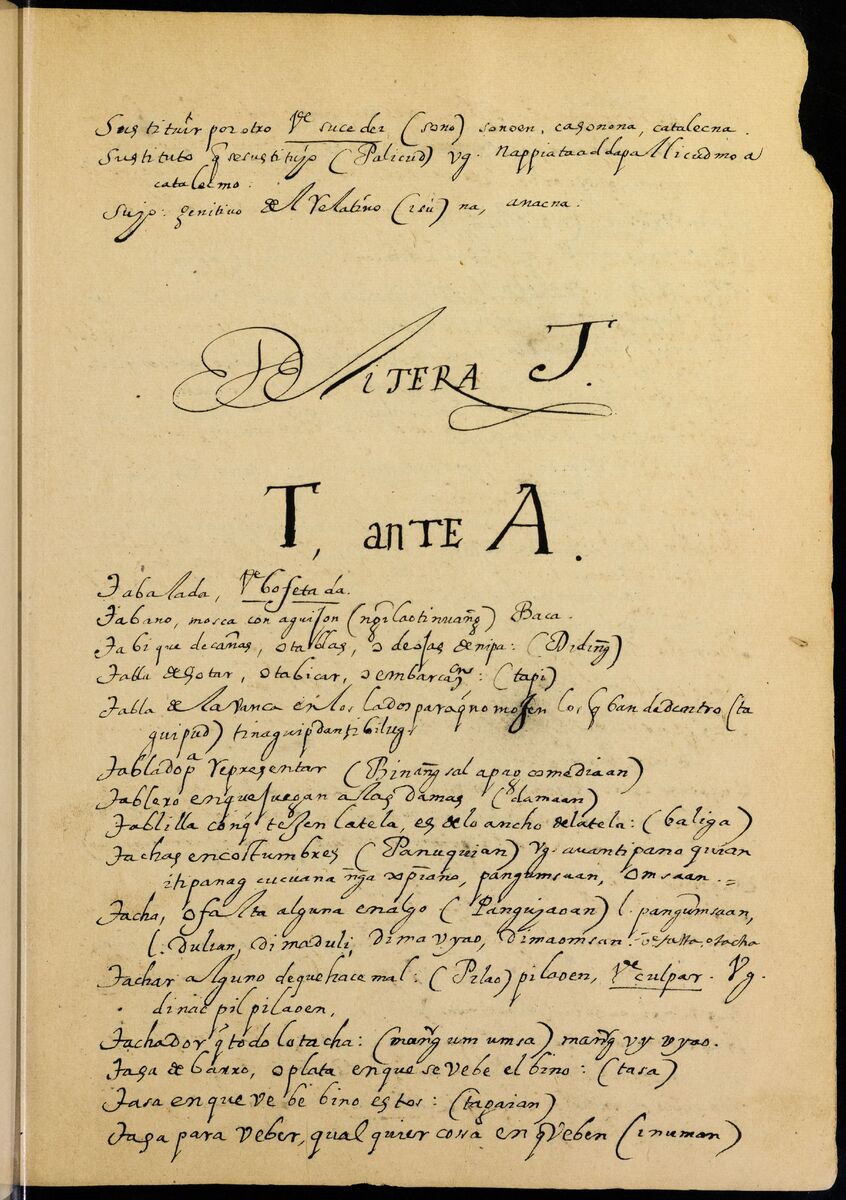 Sustituir por otro Vᵈᵉ suceder (sono) sonoen, casonona, catalecna.
Sustituto q̃ sesustitujo (Palicud) vg. nappiataaddapallicudmo a
catalecmo.
Sujo: genitivo del Relatiuo (isù) na, anacna.
LITERA T.
T, anTE A.
Tabalada, Vᵈᵉ bofetada.
Tabano, mosca con aguijon Baca.
Tabique decañas, o tablas, o deojas de nipa: (Didinĝ)
Tabla de sotar, o tabicar, o embarcac̃: (tapi)
Tabla de lavanca en los lados paraq̃no mojen los q̃ ban dedentro (ta
quipud) tinaquipdantibilug.
Tabladopᵃ representar (Binanĝsal apag comediaan)
Tablero enquejuegan alas damas (damaan)
Tablilla conq̃ tejen latela, es delo ancho delatela: (baliga)
Tachas encostumbres (Panuquian) vg. auantipanoquian
itipanag cucuana nĝa xp̃iano, pangumsaan, omsaan.
Tacha, o falta alguna enalgo (Pangujaoan) l. pangumsaan,
l. dulian, dimaduli, dimavyao, dimaomsan.
Tachar alguno dequehace mal: (Pilao) pilaoen, Vᵈᵉ culpar. Vg.
dinac pilpilaoen,
Tachador q̃ todo lotacha: (manĝumumsa) manĝvyvyao.
Tasa de barro, o plata enque se vebe el bino: (tasa)
Tasa enque vebe bino estos: (tagaian)
Tasa para veber, qualquier cossa en q̃ veben (inuman)